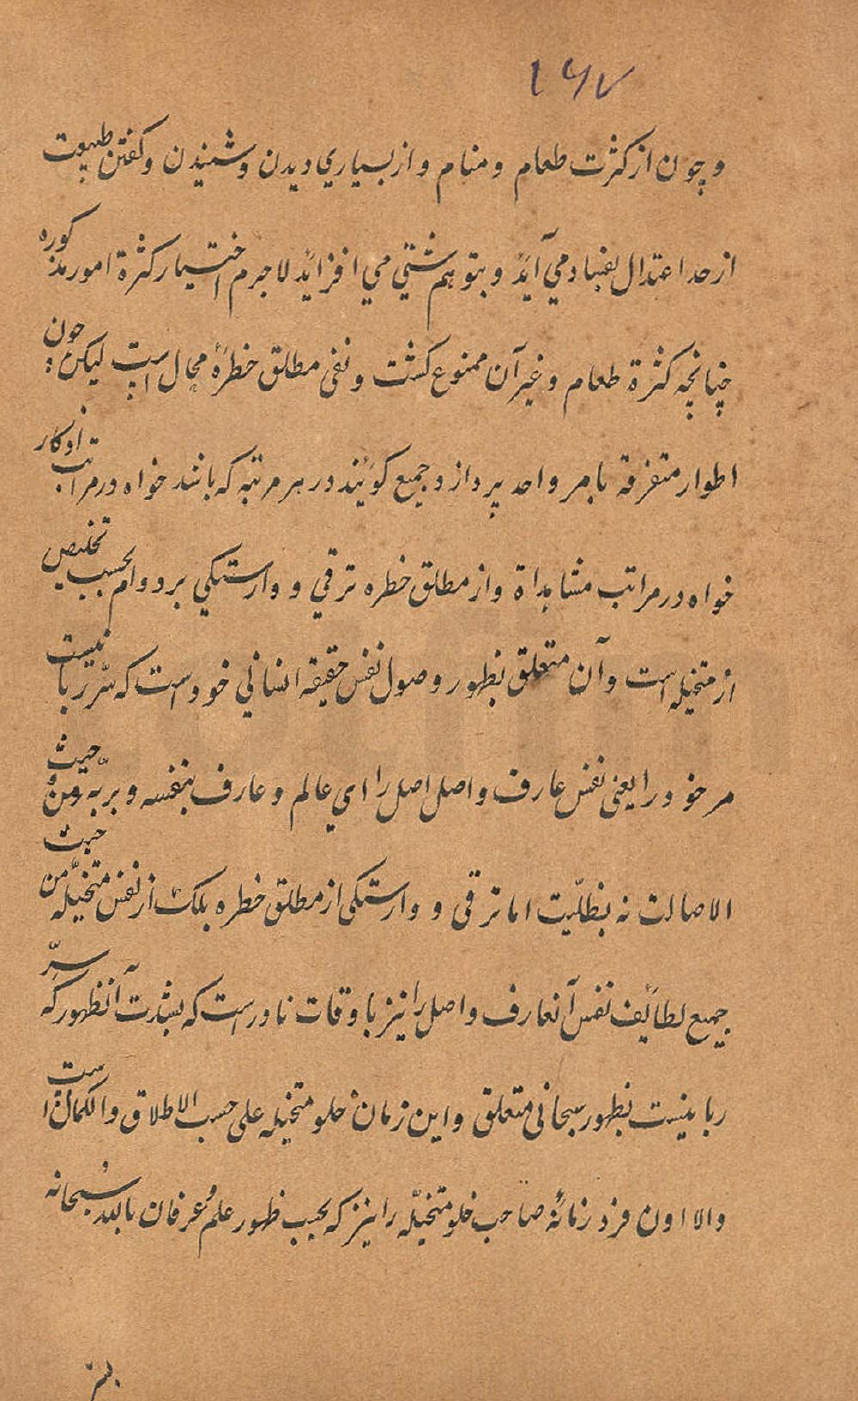 ۱۶۷
و چون از کثرت طعام و منام و از بسیاري دیدن و شنیدن و کفتن طبیعت
از حد اعتدال بفساد مي آید و بتوهم شتي مي افزاید لاجرم اختیار کثرة امور مذکوره
چنانچه کثرة طعام و غیر آن ممنوع کشت و نفی مطلق خطرهٔ محال است لیکن چون
اطوار متفرقة بامر واحد پردازد جمع کویند در هر مرتبه که بانند خواه در مراتب اذکار
خواه در مراتب مشاهداة و از مطلق خطره ترقي و وارستکي بر دوام بحسب تخلیص
از متخیله است و آن متعلق بظهور وصول نفس حقیقه انساني خود است که سرّ ربانیست
مر خود را یعنی نفس عارف واصل اصل را اي عالم و عارف بنفسه و بربّه من حیث
الاصالت نه بظلّیت اما ترقی و وارستکی از مطلق خطره بلکه از نفس متخیّله من حیث
جمیع لطائف نفس آنعارف واصل را نیز باوقات نادر است که بشدت آنظهور که سرّ
ربانیست بظهور سبحانی متعلق و این زمان خلو متخیله علی حسب الاطلاق والکمال است
والا اون فرد زمانهٔ صاحب خلو متخیّله را نیز که بحسب ظهور علم و عرفان بالله سبحانه